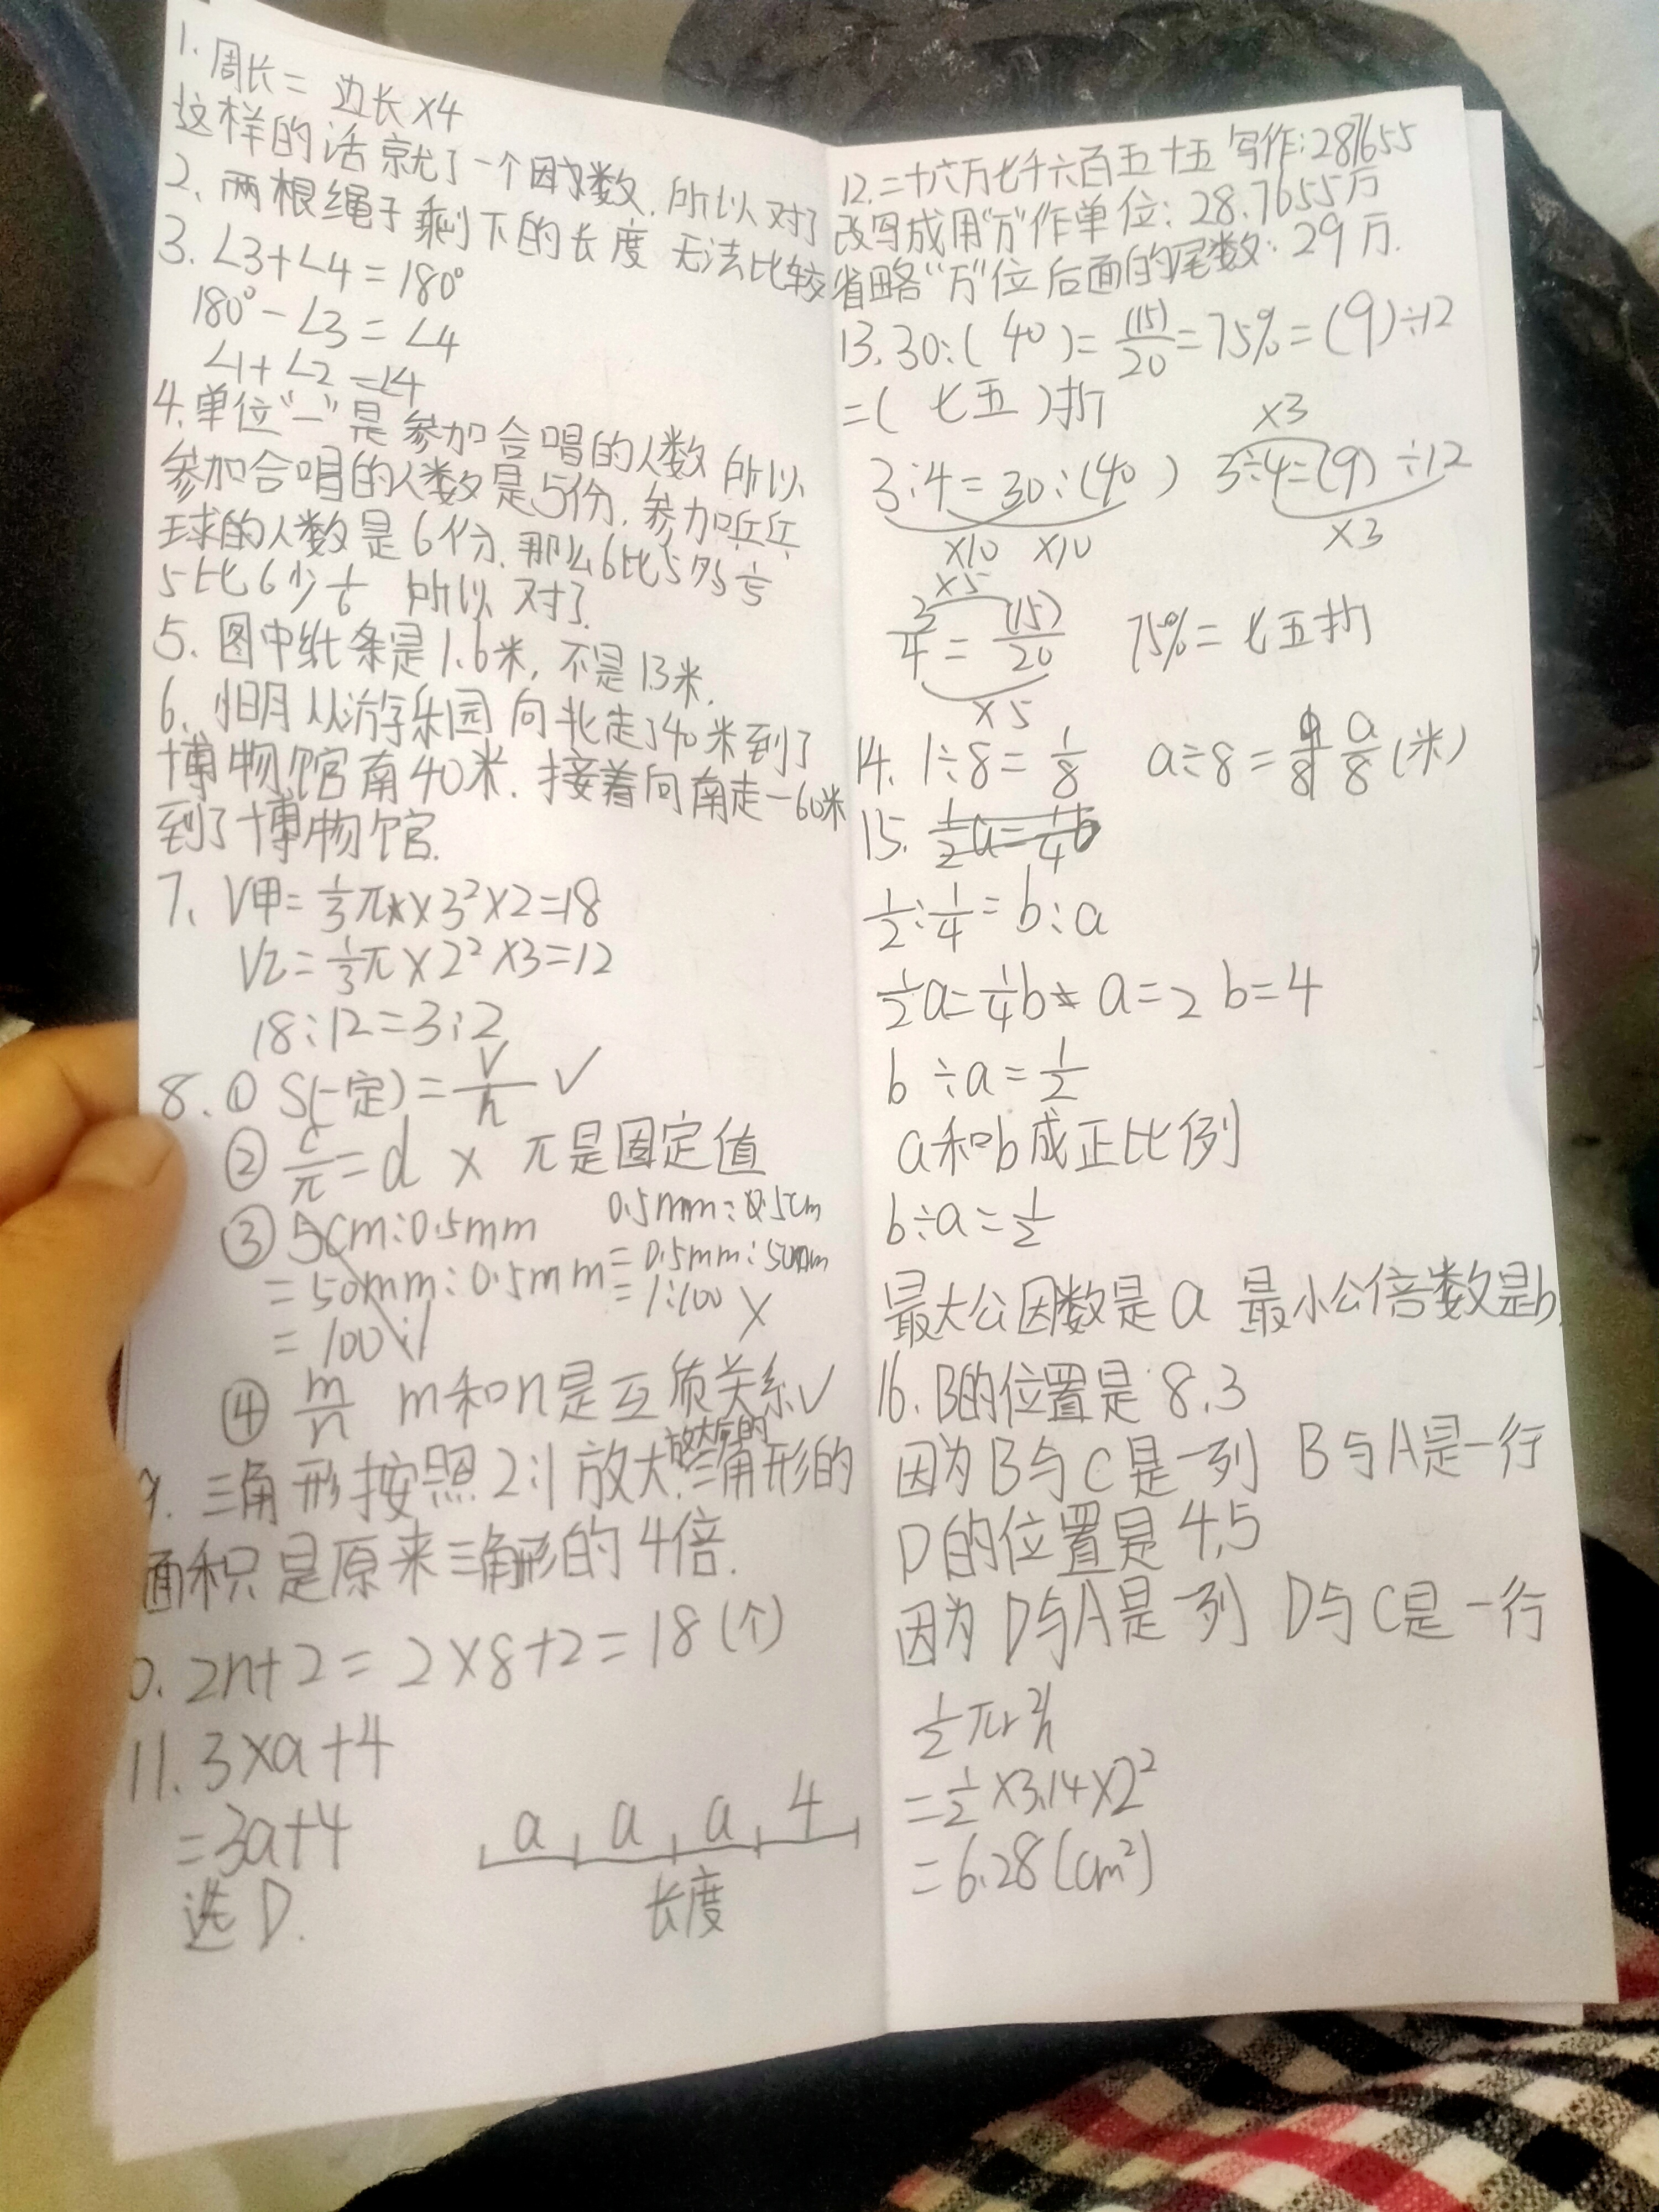 1. 周长 = 边长×4
这样的话就了一个因数. 所以对了
2. 两根绳子剩下的长度无法比较
3. ∠3+∠4=180°
180°-∠3=∠4
∠1+∠2=∠4
4. 单位"一"是参加合唱的人数 所以
参加合唱的人数是5份, 参加乒乓
球的人数是6份. 那么6比5多1/5
5比6少1/6 所以对了.
5. 图中纸条是1.6米, 不是13米.
6. 小明从游乐园向北走了40米到了
博物馆南40米. 接着向南走-60米
到了博物馆.
7. V甲=1/3π××3²×2=18
V乙=1/3π×2²×3=12
18:12=3:2
8. ① S(一定)=V/h ✓
② C/π=d × π是固定值
③ 5cm:0.5mm
=50mm:0.5mm
=100:1
0.5mm:5cm
=0.5mm:50mm
=1:100 ×
④ m/n m和n是互质关系✓
9. 三角形按照2:1放大. 放大后的三角形的
面积是原来三角形的4倍.
0. 2n+2=2×8+2=18(个)
11. 3×a+4
=3a+4
选D.
a a a 4
长度
12. 二十六万七千六百五十五 写作:287655
改写成用"万"作单位: 28.7655万
省略"万"位后面的尾数: 29万.
13. 30:(40)=(15)/20=75%=(9)÷12
=(七五)折
3:4=30:(40) 3÷4=(9)÷12
×10 ×10 ×3 ×3
3/4=(15)/20 75%=七五折
×5 ×5
14. 1÷8=1/8 a÷8=a/8(米)
15. 1/2a=1/4b
1/2:1/4=b:a
1/2a=1/4b a=2 b=4
b÷a=1/2
a和b成正比例
b÷a=1/2
最大公因数是a 最小公倍数是b.
16. B的位置是8,3
因为B与C是一列 B与A是一行
D的位置是4,5
因为D与A是一列 D与C是一行
1/2πr²h
=1/2×3.14×2²
=6.28(cm²)